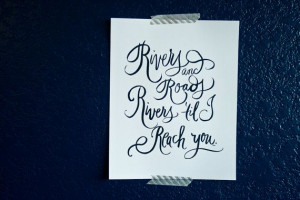 Rivers
and
Roads
Rivers 'til I
Reach you.